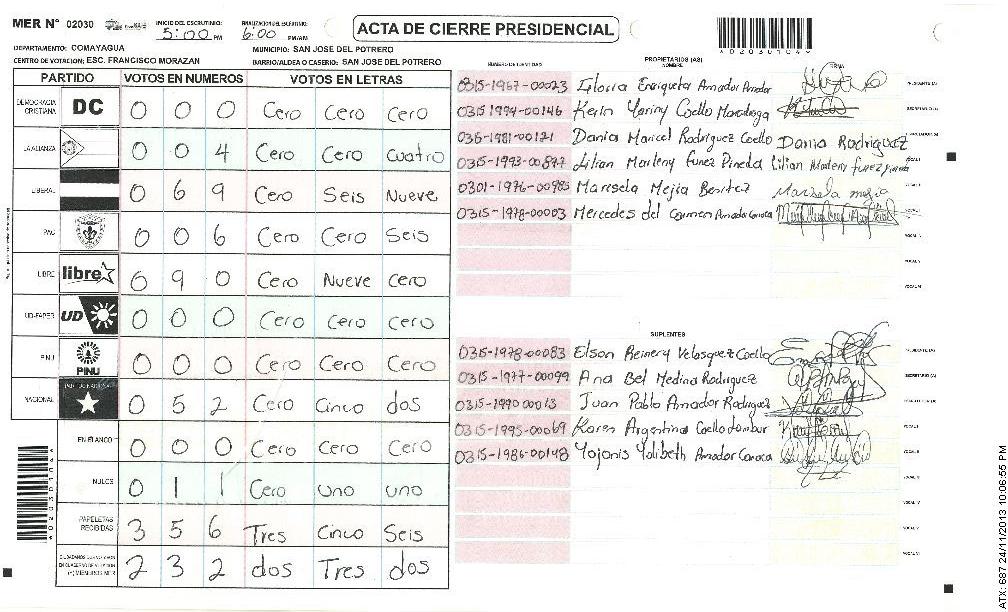 MER N° 02030 INICIO DEL ESCRUTINIO: 5:00 PM FINALIZACION DEL ESCRUTINIO: 6:00 PM/AM ACTA DE CIERRE PRESIDENCIAL
A02030104A
DEPARTAMENTO: COMAYAGUA MUNICIPIO: SAN JOSE DEL POTRERO
CENTRO DE VOTACION: ESC. FRANCISCO MORAZAN BARRIO/ALDEA O CASERIO: SAN JOSE DEL POTRERO
PARTIDO VOTOS EN NUMEROS VOTOS EN LETRAS
DEMOCRACIA CRISTIANA DC 0 0 0 Cero Cero Cero
LA ALIANZA 0 0 4 Cero Cero Cuatro
LIBERAL 0 6 9 Cero Seis Nueve
PAC 0 0 6 Cero Cero Seis
LIBRE libre 6 9 0 Cero Nueve Cero
UD-FAPER UD 0 0 0 Cero Cero Cero
PINU PINU 0 0 0 Cero Cero Cero
NACIONAL 0 5 2 Cero Cinco dos
EN BLANCO 0 0 0 Cero Cero Cero
NULOS 0 1 1 Cero uno uno
PAPELETAS RECIBIDAS 3 5 6 Tres Cinco Seis
2 3 2 dos Tres dos
PROPIETARIOS (AS)
NUMERO DE IDENTIDAD NOMBRE FIRMA
0315-1967-00023 Gloria Enriqueta Amador Amador PRESIDENTE (A)
0315 1994-00146 Kerin Yaniny Coello Mondragon SECRETARIO (A)
0315-1981-00121 Dania Maricel Rodriguez Coello Dania Rodriguez
0315-1993-00897 Lilian Marleny Funez Pineda Lilian Marleny funez pineda
0301-1976-00985 Marisela Mejia Benitez Marisela mejia
0315-1978-00003 Mercedes del Carmen Amador
SUPLENTES
0315-1978-00083 Elson Reinery Velasquez Coello PRESIDENTE (A)
0315-1977-00099 Ana Bel Medina Rodriguez SECRETARIO (A)
0315-1990 00013 Juan Pablo Amador Rodriguez
0315-1995-00069 Karen Argentina Coello
0315-1986-00148 Yojonis Yolibeth Amador
A02030104A
ATX: 687 24/11/2013 10:06:55 PM